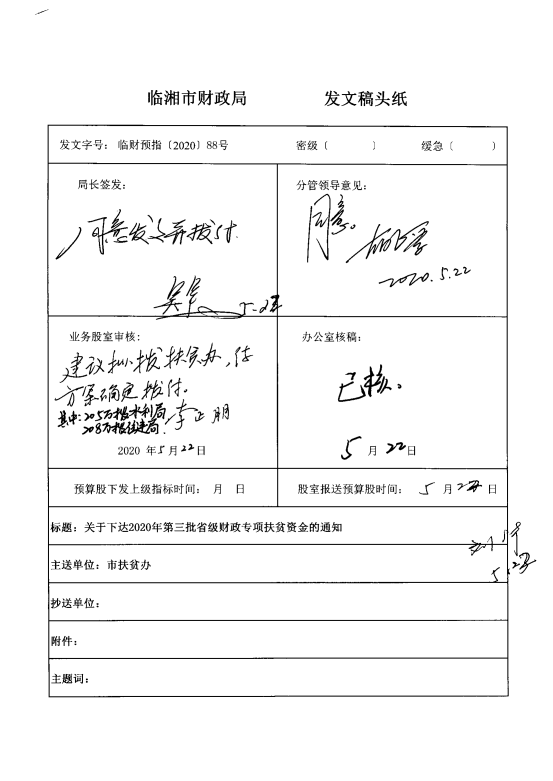 临湘市财政局 发文稿头纸
发文字号：临财预指〔2020〕88号 密级〔 〕 缓急〔 〕
局长签发：
同意发文并拨付.
5.22
分管领导意见：
同意。
2020.5.22
业务股室审核：
建议拟拨扶贫办，待
方案确定拨付。
其中:205万拨水利局
208万拨住建局
李正明
2020 年5月22日
办公室核稿：
已核。
5 月 22日
预算股下发上级指标时间： 月 日
股室报送预算股时间： 5 月22日
标题：关于下达2020年第三批省级财政专项扶贫资金的通知
主送单位：市扶贫办
5.22
抄送单位：
附件：
主题词：